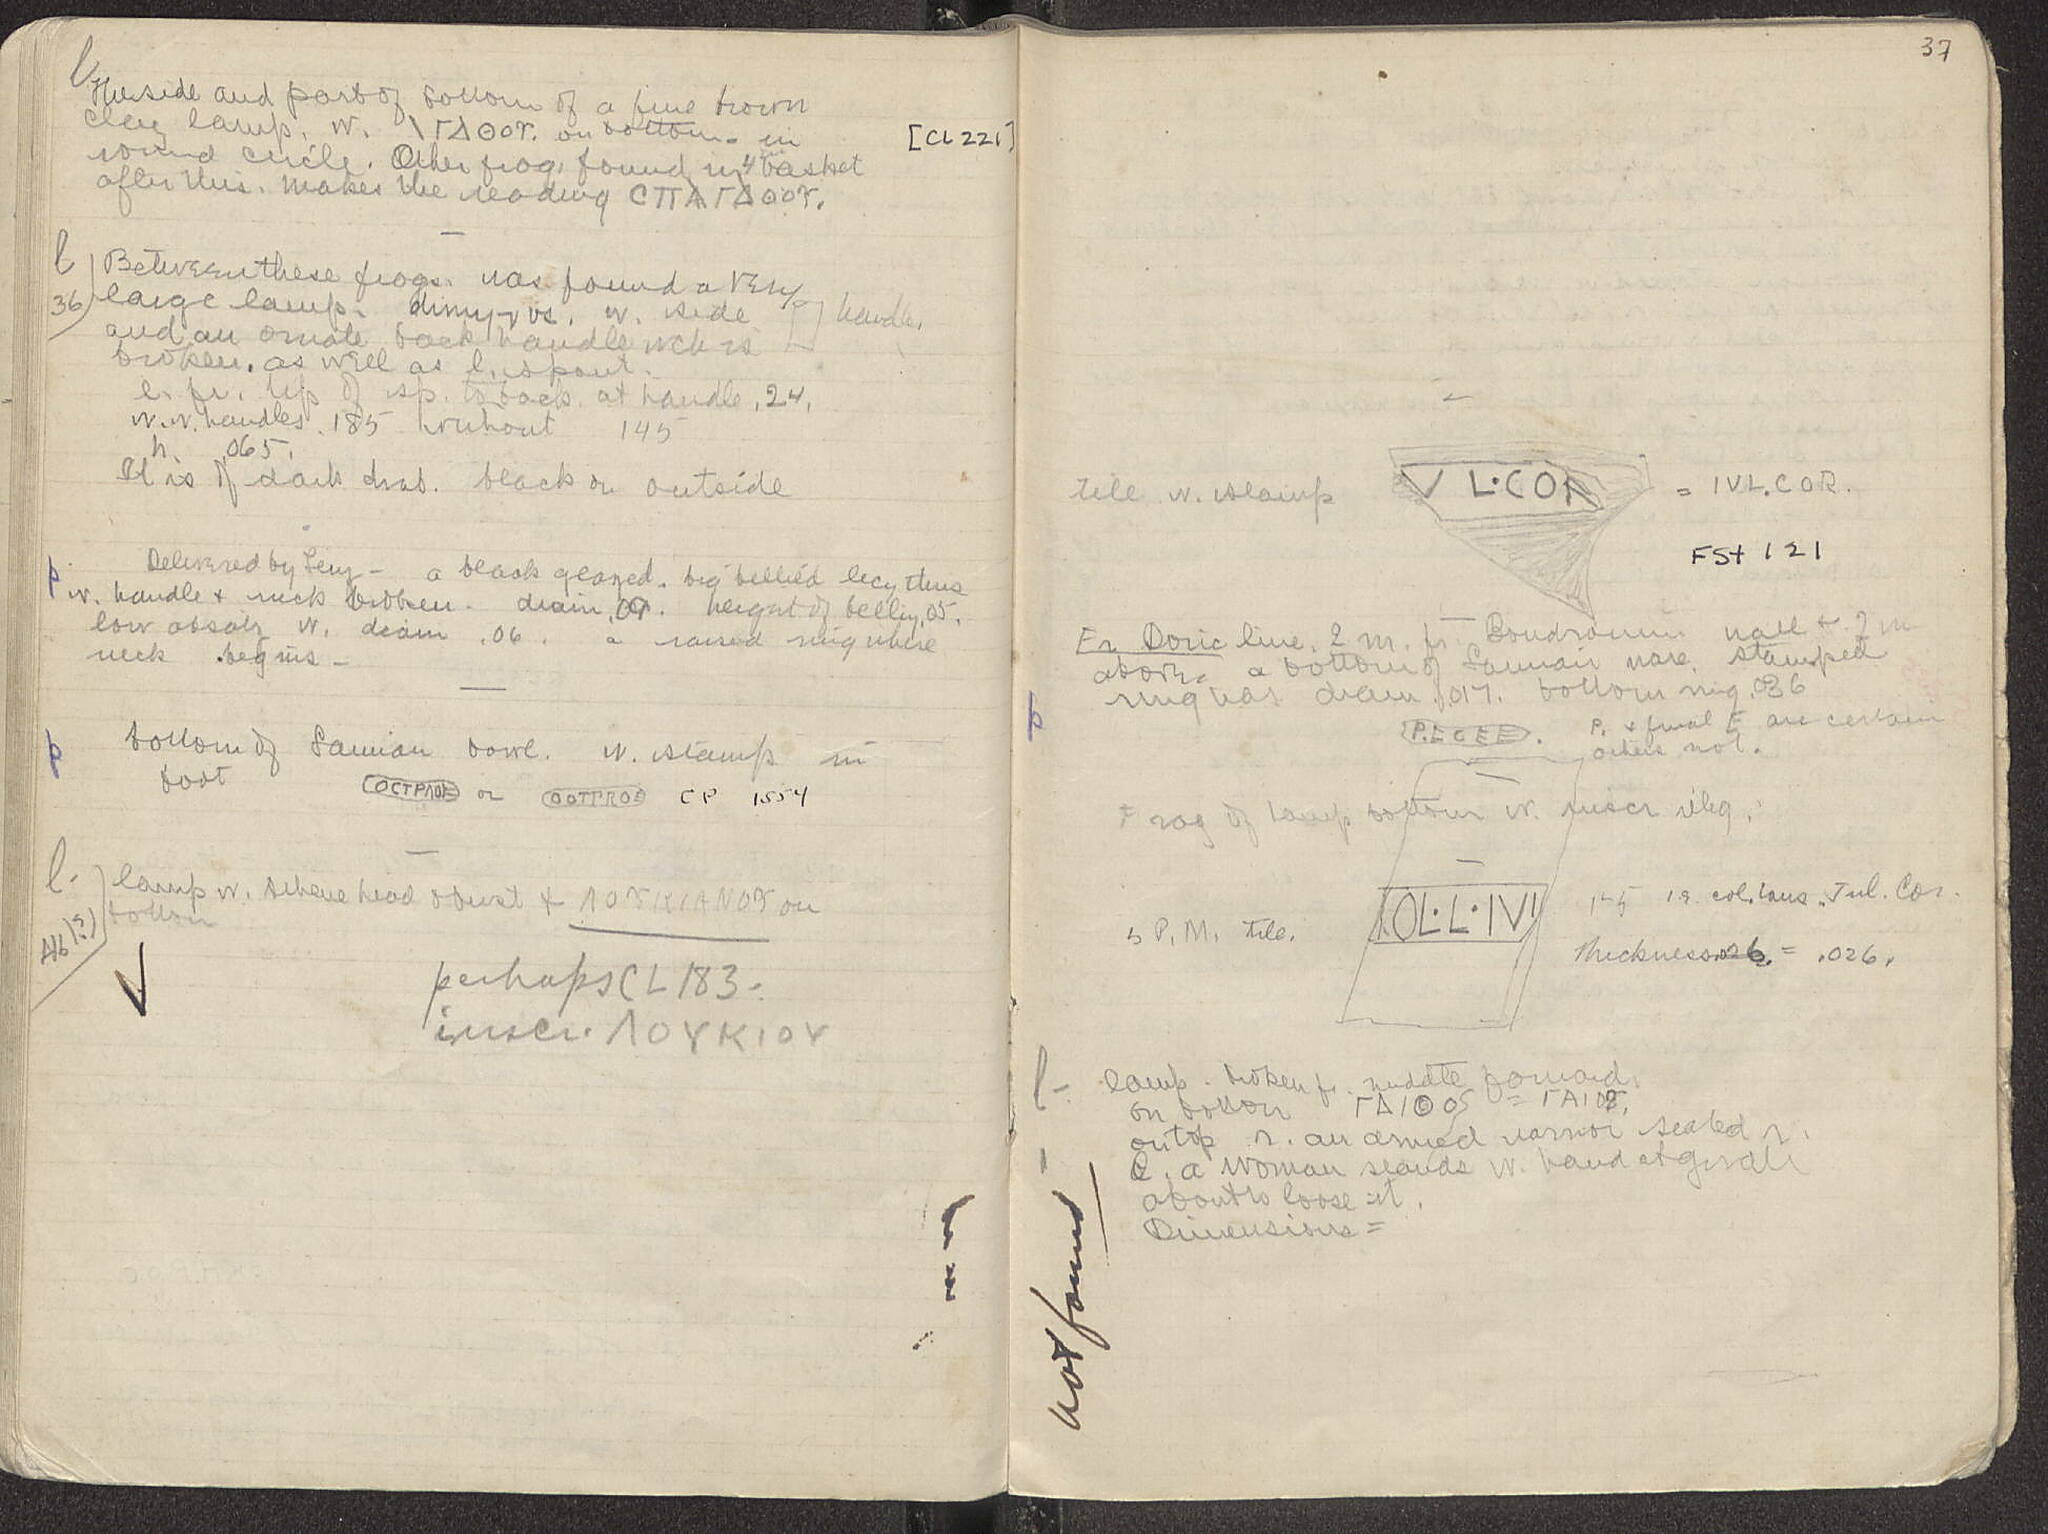 l
The side and part of bottom of a fine brown
clay lamp. w. \ΓΔΘΟΥ. on bottom. in
round circle. Other frag. found in 4th basket
after this. makes the reading CΠΑΓΔΘΟΥ.
[CL 221]
l
36
Between these frags. was found a very
large lamp. dimyxos. w. side
and an ornate back handle wch is
broken. as well as l. spout.
handle.
l. fr. tip of sp. to back at handle .24.
w. w. handles .185 without 145
h. .065.
It is of dark drab. black on outside
p
Delivered by - a black glazed. big bellied lecythus
w. handle & neck broken. diam .09. height of belly .05.
low w. diam .06. a raised ring where
neck begins -
p
bottom of Samian bowl. w. stamp in
foot OCTΡΛΟΕ or CP 1554
l.
46(?)
lamp w. Selene head & ΛΟΥΚΙΑΝΟΥ on
bottom
perhaps CL 183.
inscr. ΛΟΥΚΙΟΥ
37
tile w. stamp
V L·COR
= IVL.COR.
FSt 121
Fr Doric line. 2 m. fr. Boudroumi wall & 2 m
above. a bottom of Samian ware. stamped
ring has diam .017. bottom ring .036
p
P.ECEE. P. & final E are certain
others not.
Frag of lamp bottom w. inscr illeg.
5 P.M. tile.
COL·L·IVI
col. laus. Jul. Cor.
Thickness .026 = .026.
l-
lamp. broken fr. middle forward.
on bottom ΓΑΙΟΥ = ΓΑΙΟΥ.
on top r. an armed warrior seated r.
l. a woman stands w. hand at girdle
about to loose it.
Dimensions =
not found